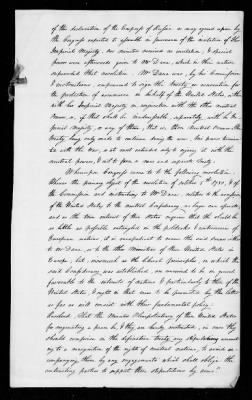 of the declaration of the Empress of Russia as may agree upon by
the Congress expected to assemble in pursuance of the invitation of that
Imperial Majesty. Our minister received no invitation, & special
powers were afterwards given to Mr Dana, which in their nature
superseded that resolution. Mr Dana was, by his Commission
& instructions, empowered to sign the treaty or convention for
the protection of commerce in behalf of the United States, either
with her Imperial Majesty in conjunction with the other neutral
Powers, or, if that shall be inadmissible, separately, with her Im-
perial Majesty, or any of them,
Treaty being only made to continue during the war.
with the war, & not needed only to agree with the
neutral powers, & not to form a new and separate treaty.
Whereupon Congress came to the following resolution.
Whereas the primary object of the resolution of October 5th 1780, & of
the Commission and instructions to Mr Dana, relative to the accession
of the United States, to the neutral Confederacy, no longer can operate;
and as the true interest of these states requires that they should be
as little as possible entangled in the politicks & controversies of
European nations, it is inexpedient to renew the said powers either
to Mr Dana, or to the other Ministers of these United States in
Europe; but inasmuch as the liberal principles, on which the
said Confederacy was established, are conceived to be in general
favourable to the interests of nations, & particularly to those of the
United States, & ought in that view to be promoted by the latter
as far as will consist with their fundamental policy:
Resolved, That the Ministers Plenipotentiary of these United States
for negotiating a peace be, & they are hereby instructed, in case they
should comprise in the definitive treaty any stipulations amount-
ing to a recognition of the rights of neutral nations, to avoid ac-
companying them by any engagements which shall oblige the
contracting parties to support those stipulations by arms."